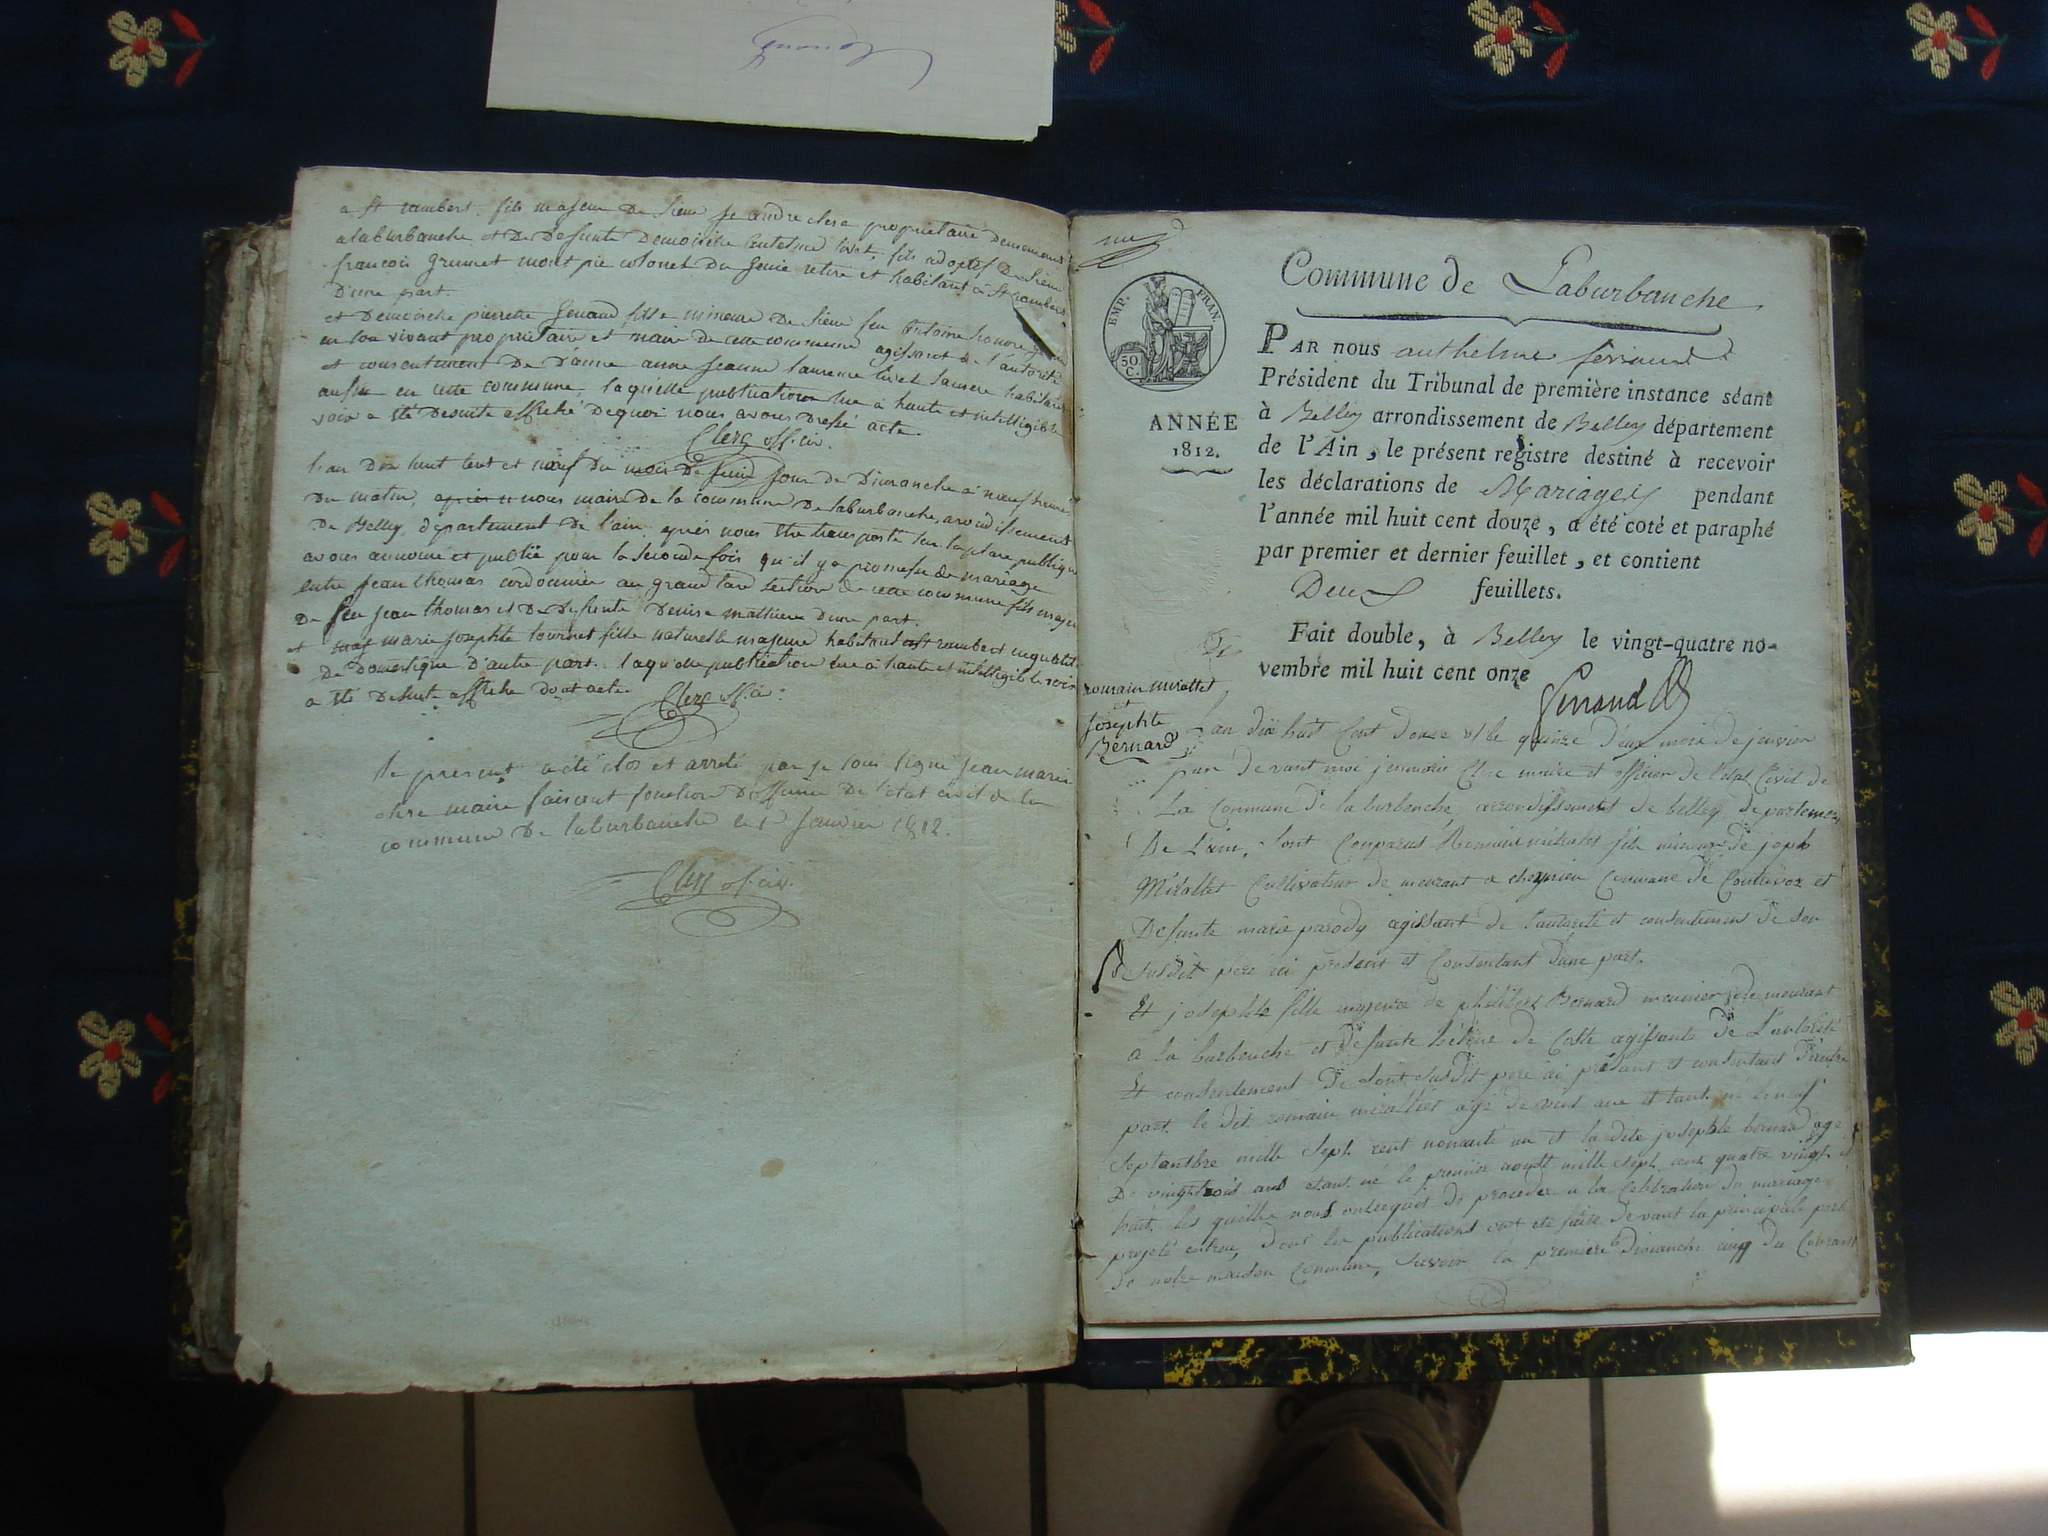 a St rambert, fils majeur de sieur je andre clerc proprietaire demeurant
a laburbanche et de defunte demoiselle livet, fils adoptif de sieur
francois grumet montpie colonel du genie retiré et habitant a St rambert
d'une part.
et demoiselle pierrette genaud fille mineure de sieur feu antoine honore
en son vivant propriétaire et maire de cette commune agissant de l'autorité
et consentement de dame anne jeanne laurence livet sa mere habitant
aussi en cette commune, laquelle publication lue à haute et intelligible
voix a été desuite affiché dequoi nous avons dressé acte.
Clerc off. civ.
l'an dix huit cent et neuf du mois de juin jour de dimanche à neuf heures
du matin, nous maire de la commune de laburbanche, arondissement
de Belley, département de l'ain après nous être transporté sur la place publique
avons annoncé et publié pour la seconde fois qu'il y a promesse de mariage
entre jean thomas cordonnier au grand section de cette commune fils majeur
de feu jean thomas et de defunte denise mathieu d'une part.
et marie josephte tournet fille naturelle majeure habitant St rambert en qualité
de domestique d'autre part. laquelle publication lue à haute et intelligible voix
a été desuite affiché dont acte.
Clerc off. civ.
le present acte clos et arreté par je sous signé jean marie
clerc maire faisant fonction d'officier de l'état civil de la
commune de laburbanche le 1r janvier 1812.
Clerc of. civ.
Commune de Laburbanche
EMP. FRAN.
50 C.
ANNÉE
1812.
PAR nous anthelme ferrand
Président du Tribunal de première instance séant
à Belley arrondissement de Belley département
de l'Ain, le présent registre destiné à recevoir
les déclarations de Mariages pendant
l'année mil huit cent douze, a été coté et paraphé
par premier et dernier feuillet, et contient
Deux feuillets.
Fait double, à Belley le vingt-quatre no-
vembre mil huit cent onze
romain mirallet
et
Josephte
Bernard
L'an dix huit cent douze et le quinze d'eux mois de janvier
par devant moi jeanmarie Clerc maire et officier de l'etat Civil de
La Commune de la burbanche, arrondissement de belley departement
De L'ain, sont Comparus Romain mirallet fils mineur de joph
Mirallet Cultivateur demeurant a cheynieu Commune de Contrevoz et
Defunte marie parody agissant de l'autorité et consentement de son
susdit pere ici present et Consentant d'une part.
Et josephte fille majeure de philibert Bernard meunier demeurant
a la burbanche et defunte hélène de Coste agissante de L'autorité
Et consentement de sont susdit pere ici présant et consentant d'autre
part. le dit romain mirallet agé de vint ans et tant
septanbre mille sept cent nonante un et la dite josephte bernard age
De vingt trois ans etant né le premier aoust mille sept cent quatre vingt et
huit. les quelles nous ont requis de proceder a la Celebration du mariage
projeté entreu, dont les publications ont ete faite devant la principale porte
de notre maison Commune, savoir la premiere dimanche cinq du Courant